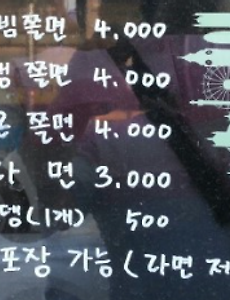 빔쫄면 4,000
쫄면 4,000
쫄면 4,000
면 3,000
뎅(1개) 500
포장 가능 (라면 제